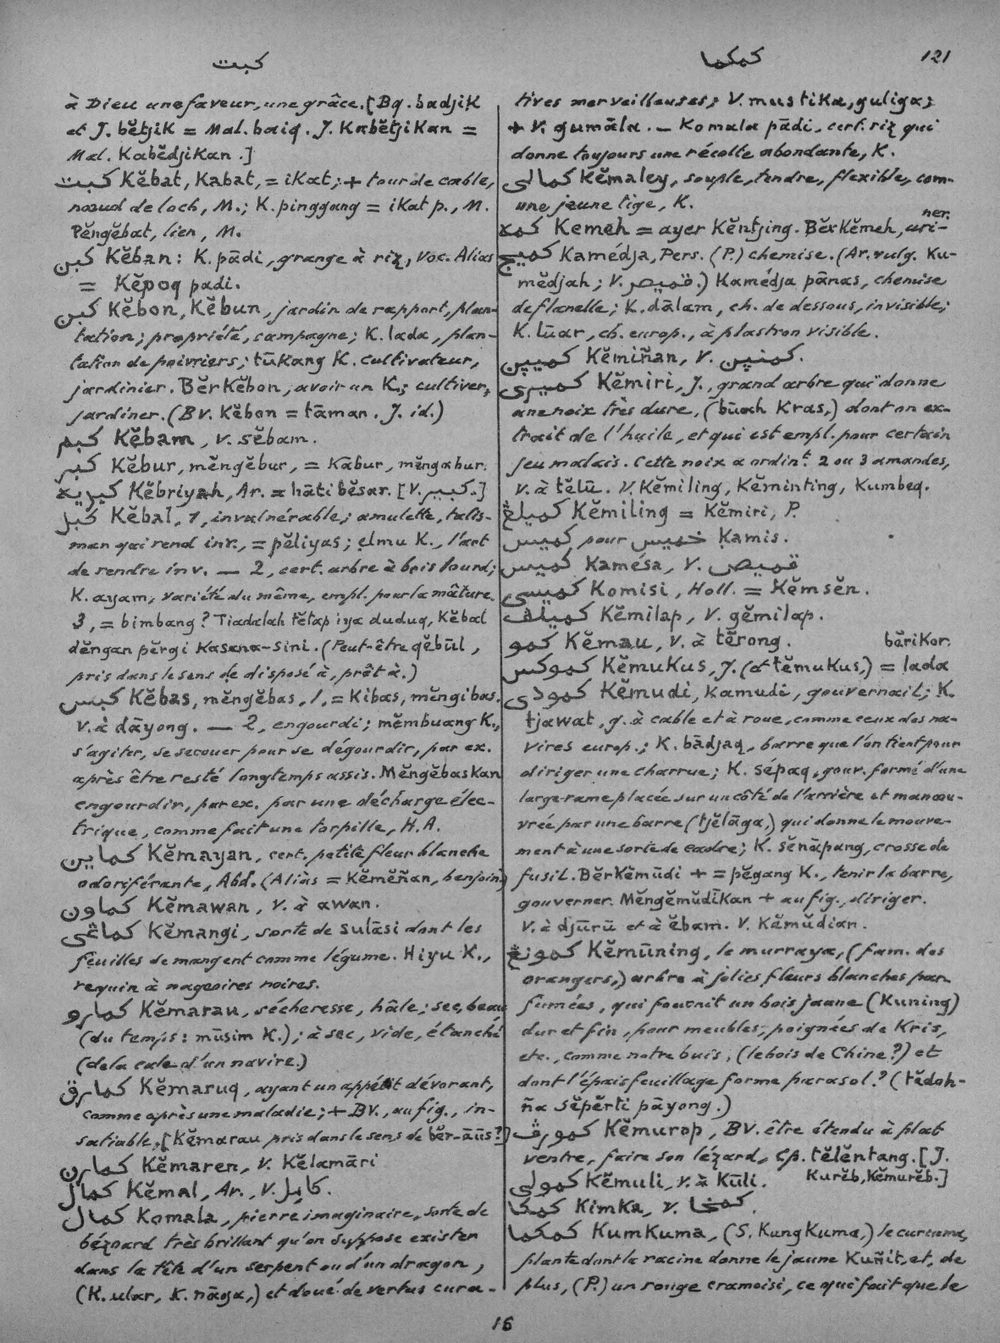 كبت
كمكما
121
à Dieu une faveur, une grâce. [Bq. badjik
et J. bĕtjik = Mal. baiq. J. Kabĕtjikan =
Mal. Kabĕdjikan.]
كبت Kĕbat, Kabat, = ikat; + tour de cable,
nœud de loch, M.; K. pinggang = ikat p., M.
Pĕngĕbat, lien, M.
كبن Kĕban: K. pādi, grange à riz, voc. Alias
= Kĕpoq padi.
كبن Kĕbon, Kĕbun, jardin de rapport, plan-
tation; propriété, campagne; K. lada, plan-
tation de poivriers; tūkang K. cultivateur,
jardinier. Bĕrkĕbon, avoir un K.; cultiver,
jardiner. (BV. Kĕbon = tāman. J. id.)
كبم Kĕbam, v. sĕbam.
كبر Kĕbur, mĕngĕbur, = Kabur, mĕngabur.
كبريه Kĕbriyah, Ar. = hāti bĕsar. [V. كبير.]
كبل Kĕbal, 1, invulnérable; amulette, talis-
man qui rend inv., = pĕliyas; elmu K., l'art
de rendre inv. — 2, cert. arbre à bois lourd;
K. ayam, variété du même, empl. pour la mâture.
3, = bimbang? Tiadalah tĕtap iya duduq, Kĕbal
dĕngan pĕrgi kasana-sini. (Peut-être qĕbūl,
pris dans le sens de disposé à, prêt à.)
كبس Kĕbas, mĕngĕbas, 1, = Kibas, mĕngibas.
v. à dāyong. — 2, engourdi; mĕmbuang K.,
s'agiter, se secouer pour se dégourdir, par ex.
après être resté longtemps assis. Mĕngĕbaskan
engourdir, par ex. par une décharge élec-
trique, comme fait une torpille, H.A.
كماين Kĕmayan, cert. petite fleur blanche
odoriférante, Abd. (Aliàs = Kĕmĕñan, benjoin)
كماون Kĕmawan, v. à awan.
كماڠي Kĕmangi, sorte de sulāsi dont les
feuilles se mangent comme légume. Hiyu K.,
requin à nageoires noires.
كمارو Kĕmarau, sécheresse, hâle; sec, beau
(du temps: mūsim K.); à sec, vide, étanché
(de la cale d'un navire.)
كمارق Kĕmaruq, ayant un appétit dévorant,
comme après une maladie; + BV., au fig., in-
satiable. [Kĕmarau pris dans le sens de bĕr-āüs?]
كمارن Kĕmaren, v. Kĕlamāri
كمال Kĕmal, Ar., v. كابل.
كمال Komala, pierre imaginaire, sorte de
bézoard très brillant qu'on suppose exister
dans la tête d'un serpent ou d'un dragon,
(K. ular, K. nāga,) et doué de vertus cura-
tives merveilleuses; V. mustika, guliga;
+ V. gumāla. — Komala pādi, cert. riz qui
donne toujours une récolte abondante, K.
كمالي Kĕmaley, souple, tendre, flexible, com-
une jeune tige, K.
كمه Kemeh = ayer Kĕntjing. Bĕrkĕmeh, uri-
ner.
كميج Kamédja, Pers. (P.) chemise. (Ar. vulg. Ku-
mĕdjah; V. قميص.) Kamédja pānas, chemise
de flanelle; K. dālam, ch. de dessous, invisible;
K. lūar, ch. europ., à plastron visible.
كميين Kĕmiñan, V. كمنين.
كميري Kĕmiri, J., grand arbre qui donne
une noix très dure, (būah Kras,) dont on ex-
trait de l'huile, et qui est empl. pour certain
jeu malais. Cette noix a ordin.t 2 ou 3 amandes,
v. à tĕlū. V. Kĕmiling, Kĕminting, Kumbeq.
كميلڠ Kĕmiling = Kĕmiri, P.
كميس pour خميس Kamis.
كميس Kamésa, V. قميص
كميسي Komisi, Holl. = Kĕmsĕn.
كميلف Kĕmilap, V. gĕmilap.
كمو Kĕmau, v. à tĕrong.
bārikor.
كموكس Kĕmukus, J. (et tĕmukus,) = lada
كمودي Kĕmudi, Kamudi, gouvernail; K.
tjawat, g. à cable et à roue, comme ceux des na-
vires europ.; K. bādjaq, barre que l'on tient pour
diriger une charrue; K. sépaq, gouv. formé d'une
large rame placée sur un côté de l'arrière et manœu-
vrée par une barre (tjĕlāga,) qui donne le mouve-
ment à une sorte de cadre; K. sĕnāpang, crosse de
fusil. Bĕrkĕmūdi + = pĕgang K., tenir la barre,
gouverner. Mĕngĕmūdīkan + au fig., diriger.
V. à djūrū et à ĕbam. V. Kĕmūdian.
كمونڠ Kĕmūning, le murraya, (fam. des
orangers,) arbre à jolies fleurs blanches par-
fumées, qui fournit un bois jaune (Kuning)
dur et fin, pour meubles, poignées de Kris,
etc., comme notre buis, (le bois de Chine?) et
dont l'épais feuillage forme parasol.? (tĕdoh-
ña sĕpĕrti pāyong.)
كمورڤ Kĕmurap, BV. être étendu à plat
ventre, faire son lézard, Cp. tĕlĕntang. [J.
Kurĕb, Kĕmurĕb.]
كمولي Kĕmuli, v. à Kūli.
كمكا Kimka, v. كمخا.
كمكما Kumkuma, (S. Kungkuma,) le curcuma,
plante dont la racine donne le jaune Kuñit, et, de
plus, (P.) un rouge cramoisi, ce qui fait que le
16